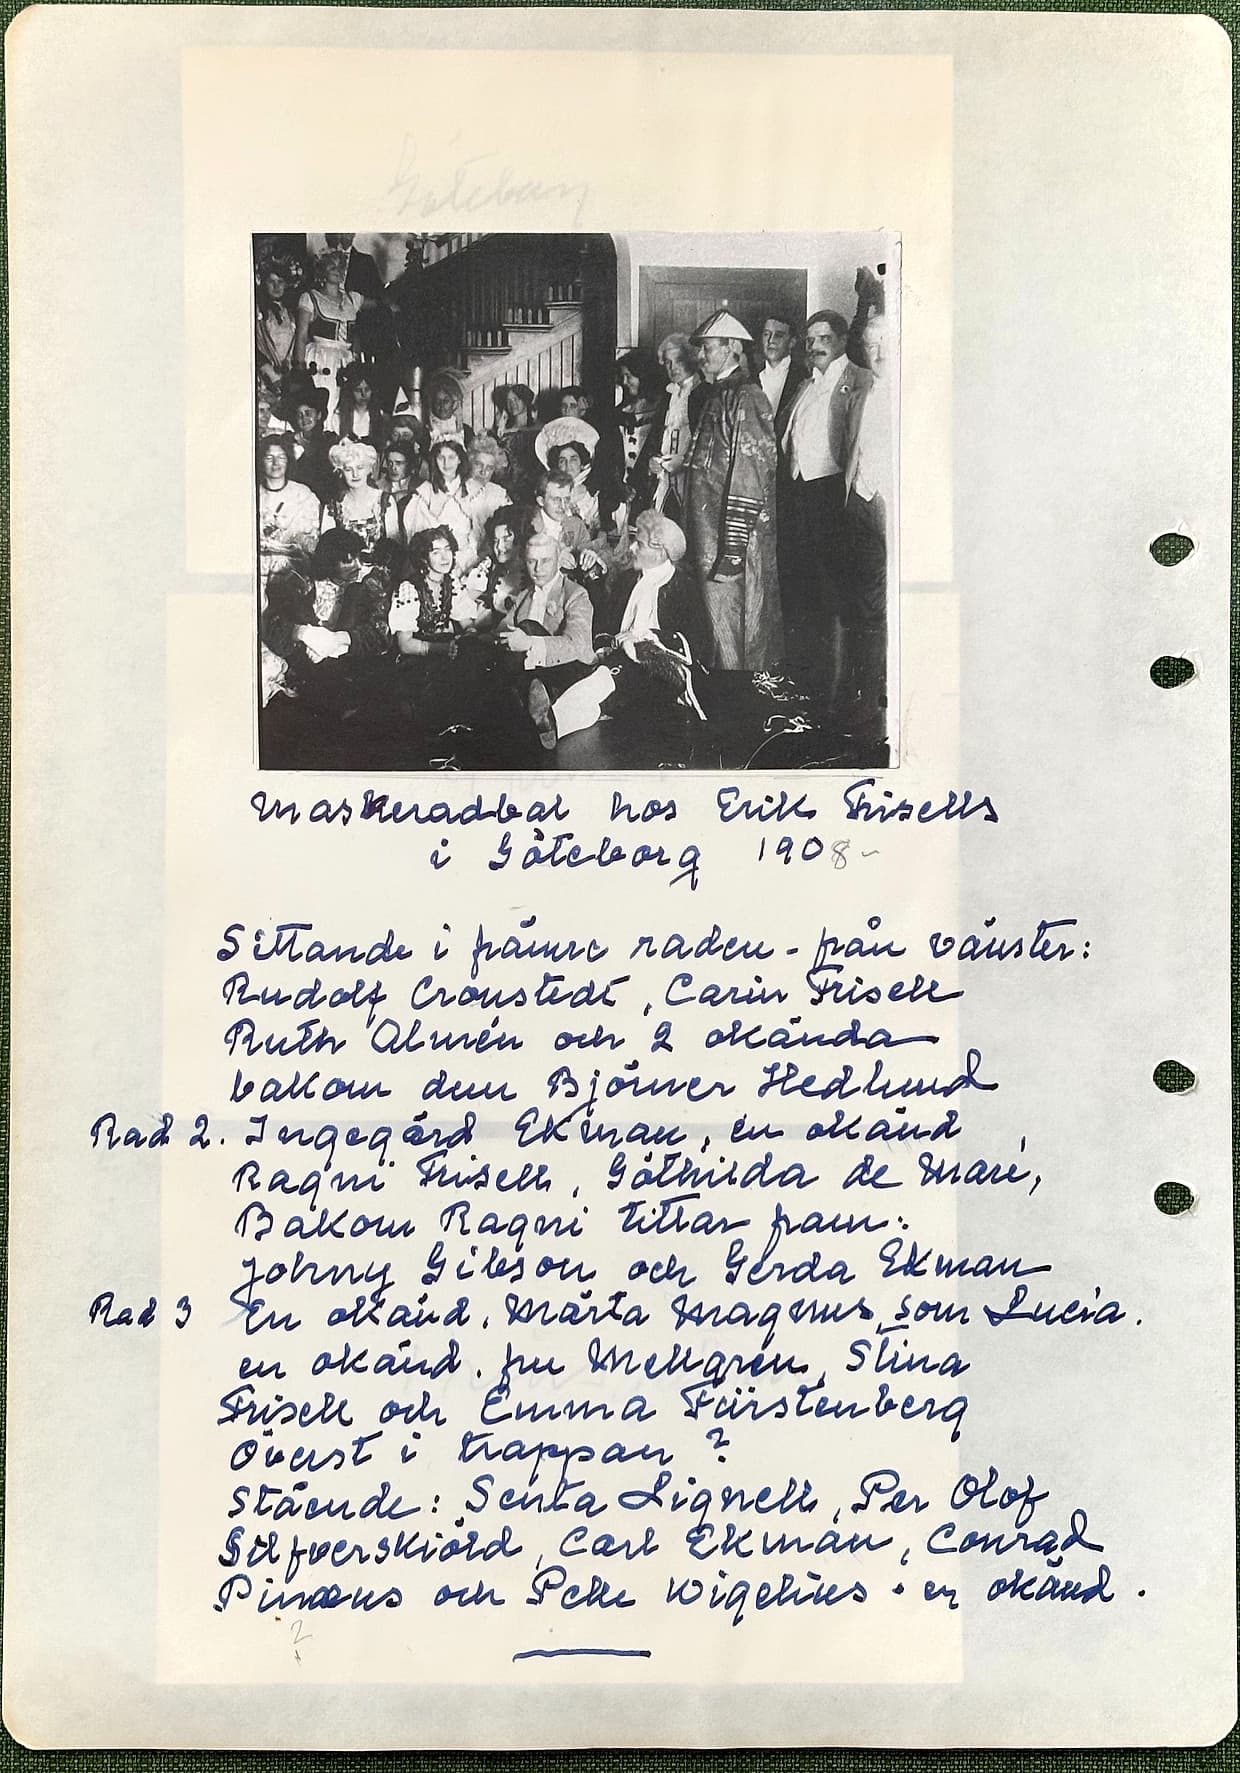 Göteborg
Maskeradbal hos Erik Frisells
i Göteborg 1908-
Sittande i främre raden - från vänster:
Rudolf Cronstedt, Carin Frisell
Ruth Almén och 2 okända
bakom dem Björner Hedlund
Rad 2. Ingegärd Ekman, en okänd,
Ragni Frisell, Göthilda de Maré,
Bakom Ragni tittar fram:
Johny Gibson och Gerda Ekman
Rad 3 En okänd, Märta Magnus, som Lucia.
en okänd. fru Mellgren, Stina
Frisell och Emma Fürstenberg
Överst i trappan ?
Stående: Senta Lignell, Per Olof
Silfverskiöld, Carl Ekman, Conrad
Pineus och Pelle Wigelius. en okänd.
?